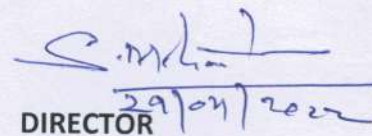 29/04/2022
DIRECTOR